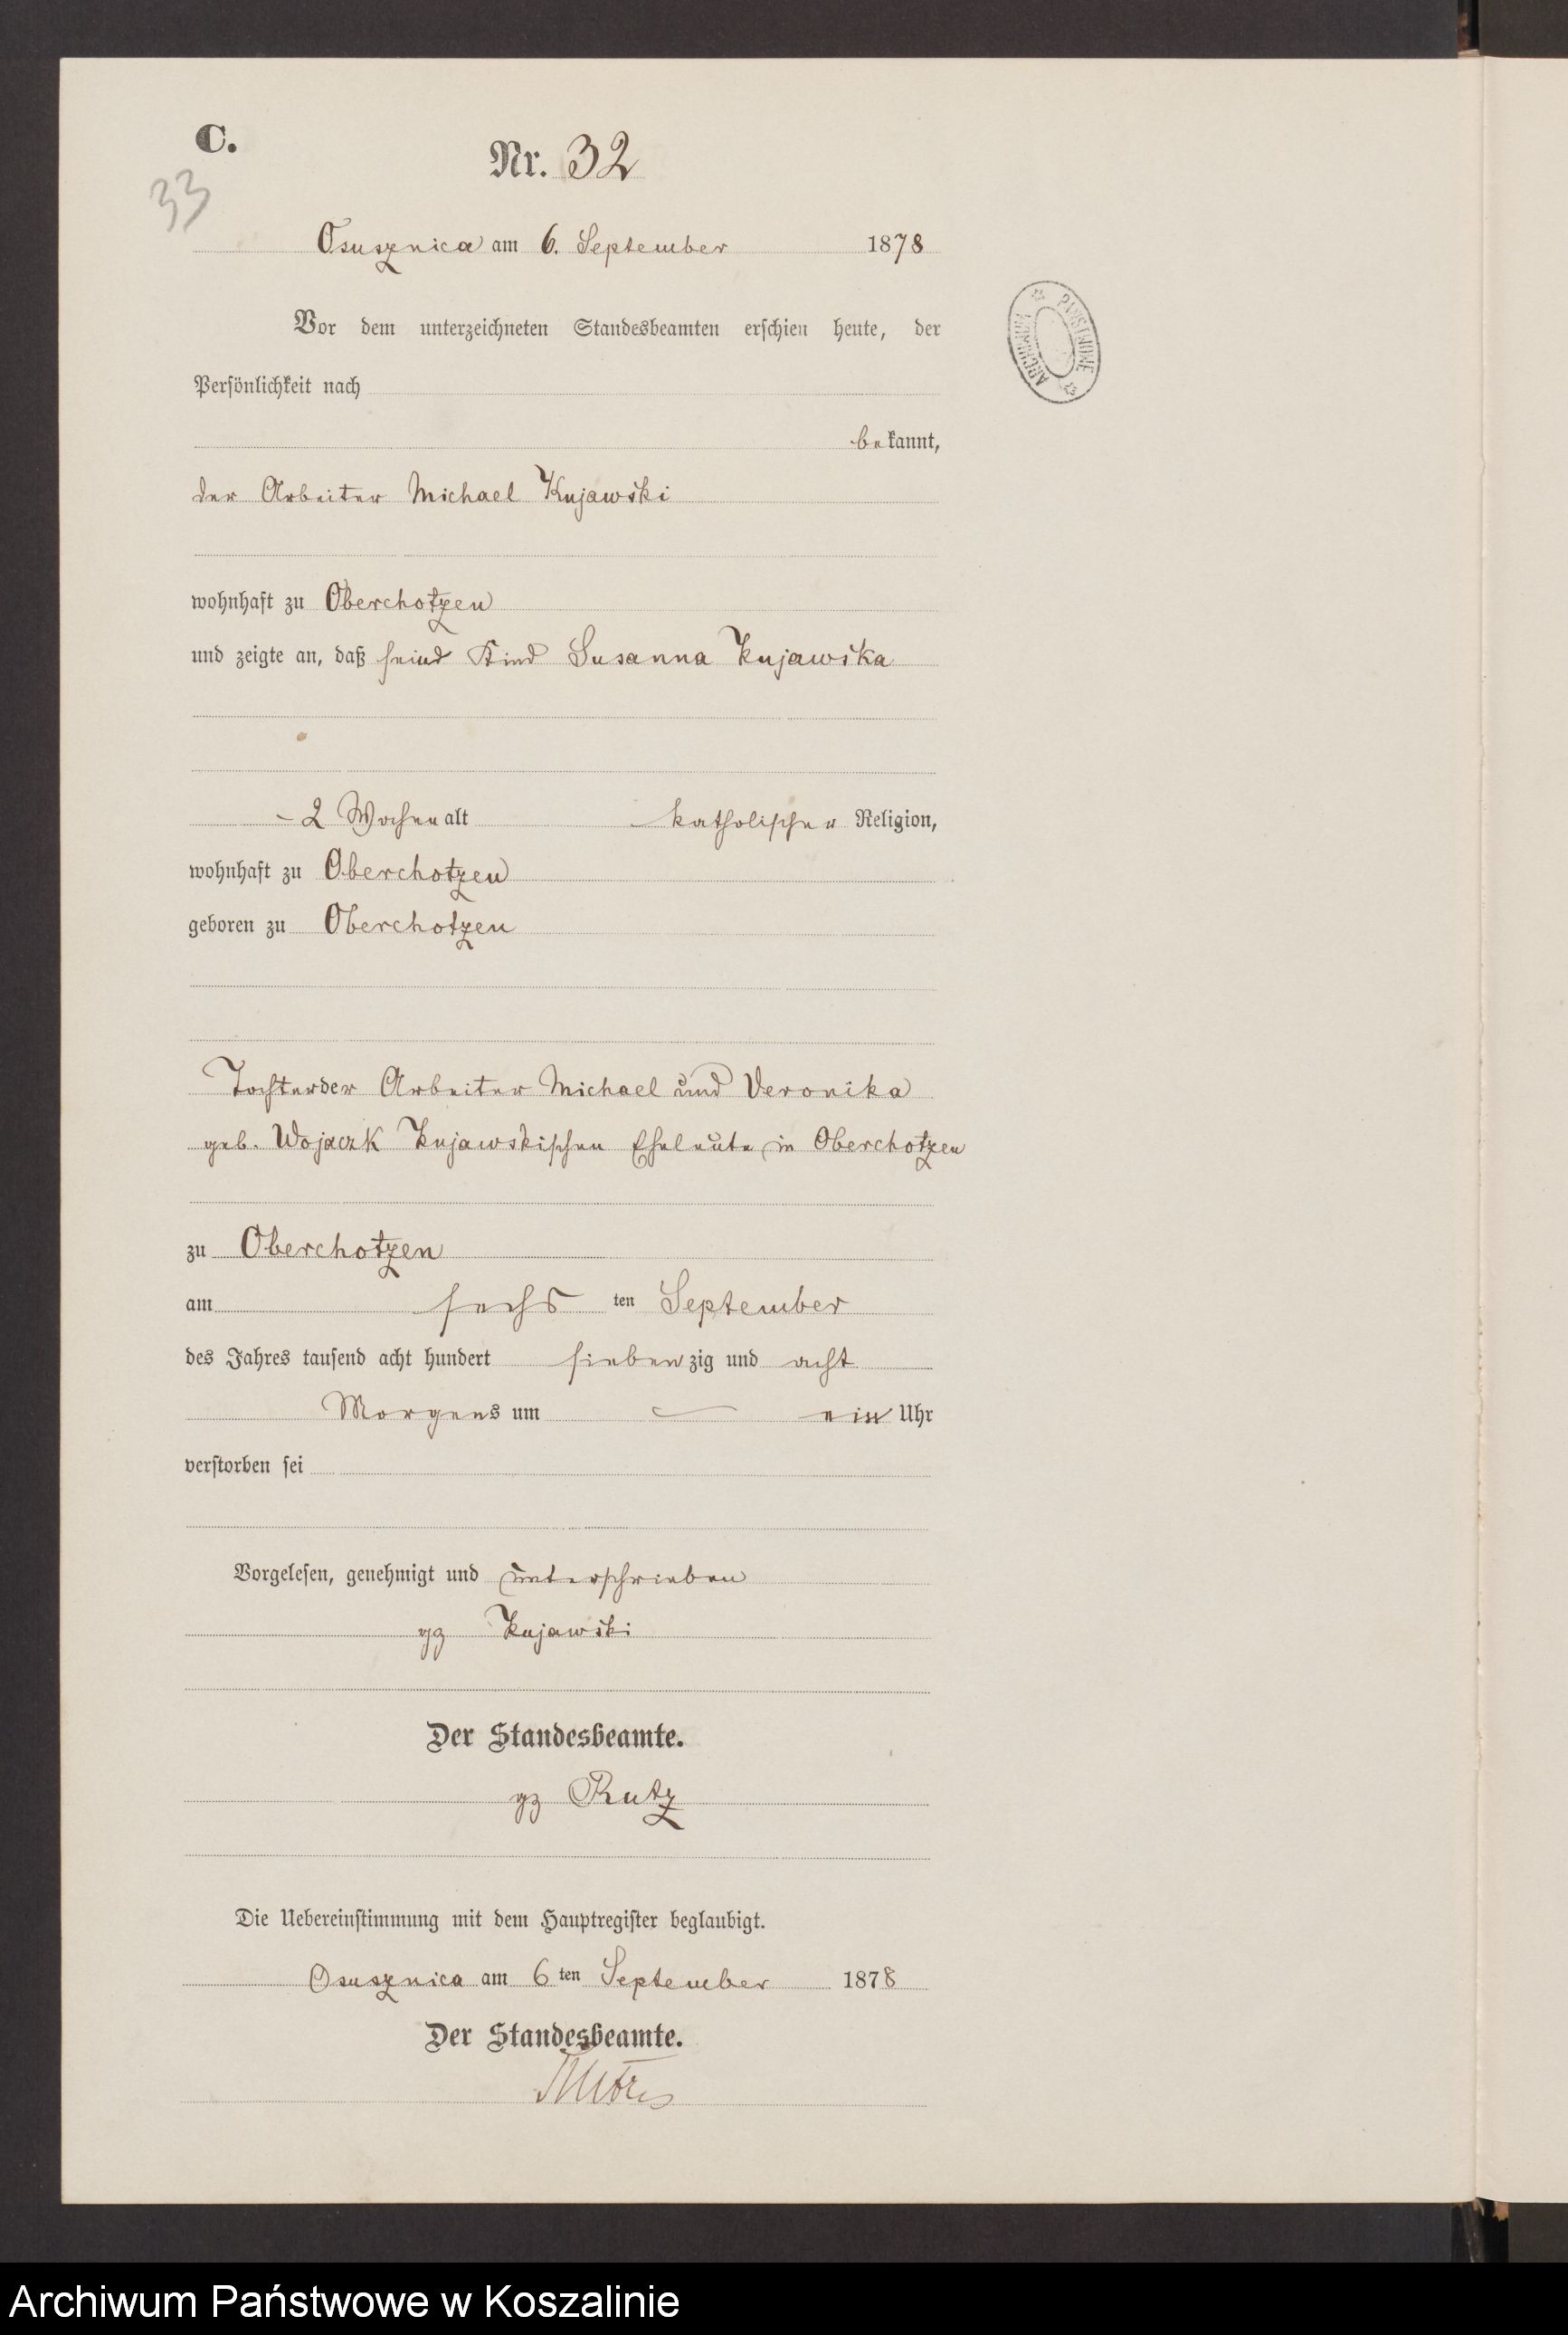 C.
Nr. 32
33
Osusznica am 6. September 1878
Vor dem unterzeichneten Standesbeamten erschien heute, der
Persönlichkeit nach
bekannt,
der Arbeiter Michael Kujawski
wohnhaft zu Oberchotzen
und zeigte an, daß seine Kind Susanna Kujawska
2 Wochen alt katholischer Religion,
wohnhaft zu Oberchotzen
geboren zu Oberchotzen
ARCHIWUM PAŃSTWOWE
Tochter der Arbeiter Michael und Veronika
geb. Wojaczk Kujawskischen Eheleute in Oberchotzen
zu Oberchotzen
am sechsten September
des Jahres tausend acht hundert siebenzig und acht
Morgens um ein Uhr
verstorben sei
Vorgelesen, genehmigt und unterschrieben
gz Kujawski
Der Standesbeamte.
gz Rutz
Die Uebereinstimmung mit dem Hauptregister beglaubigt.
Osusznica am 6ten September 1878
Der Standesbeamte.
Archiwum Państwowe w Koszalinie